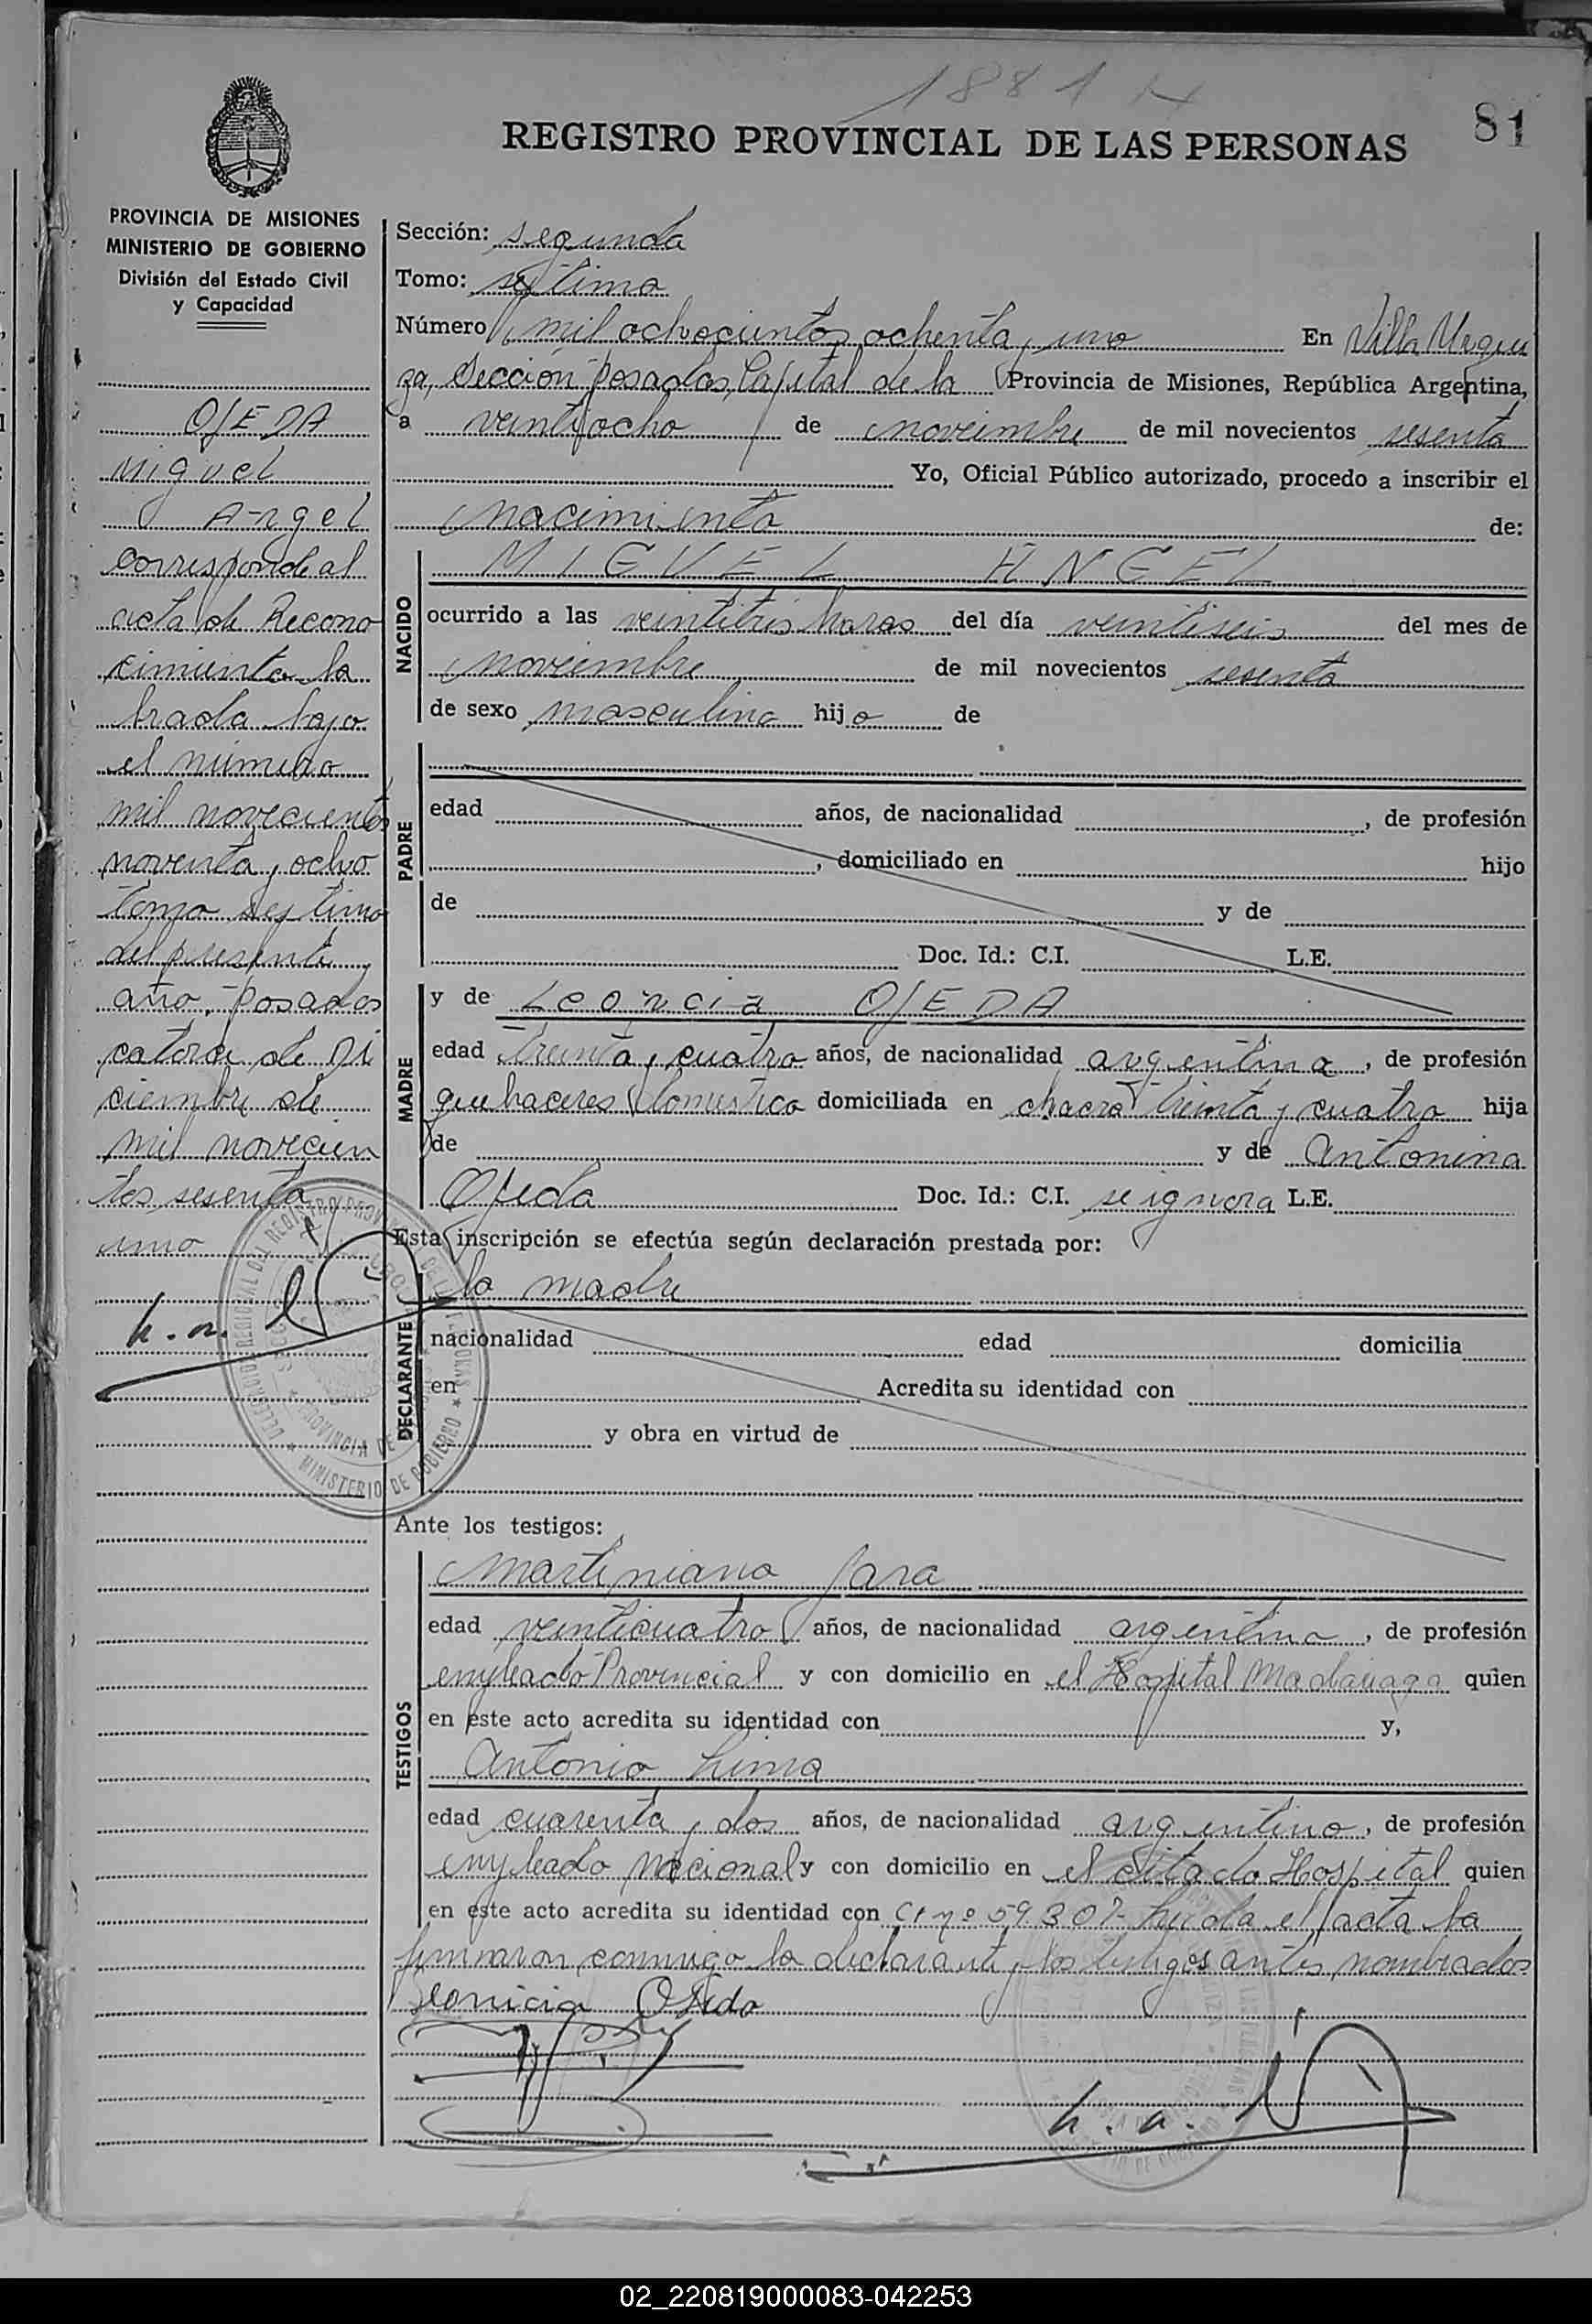 1881 N
81
REGISTRO PROVINCIAL DE LAS PERSONAS
PROVINCIA DE MISIONES
MINISTERIO DE GOBIERNO
División del Estado Civil
y Capacidad
OJEDA
Miguel
Angel
corresponde al
acta de Recono
cimiento la
brada bajo
el número
mil novecientos
noventa y ocho
tomo septimo
del presente
año, Posadas
catorce de Di
ciembre de
mil novecien
tos sesenta
uno
Sección: segunda
Tomo: septimo
Número mil ochocientos ochenta y uno En Villa Urqui
za, Sección Posadas, Capital de la Provincia de Misiones, República Argentina,
a veintiocho de noviembre de mil novecientos sesenta
Yo, Oficial Público autorizado, procedo a inscribir el
nacimiento de:
NACIDO
MIGUEL ANGEL
ocurrido a las veintitrés horas del día veintiseis del mes de
noviembre de mil novecientos sesenta
de sexo masculino hijo de
PADRE
edad años, de nacionalidad , de profesión
, domiciliado en hijo
de y de
Doc. Id.: C.I. L.E.
MADRE
y de Leoncia OJEDA
edad treinta y cuatro años, de nacionalidad argentina, de profesión
quehaceres domestico domiciliada en chacra treinta y cuatro hija
de y de Antonina
Ojeda Doc. Id.: C.I. se ignora L.E.
Esta inscripción se efectúa según declaración prestada por:
DECLARANTE
la madre
nacionalidad edad domicilia
en Acredita su identidad con
y obra en virtud de
MINISTERIO DE GOBIERNO
Ante los testigos:
TESTIGOS
Martiniano Jara
edad veinticuatro años, de nacionalidad argentino, de profesión
empleado Provincial y con domicilio en el Hospital Madariaga quien
en este acto acredita su identidad con y,
Antonio Lima
edad cuarenta y dos años, de nacionalidad argentino, de profesión
empleado nacional y con domicilio en el citado Hospital quien
en este acto acredita su identidad con CI nº 59.307 Leida el acta la
firmaron conmigo la declarante y los testigos antes nombrados
Leonicia Ojeda
02_220819000083-042253